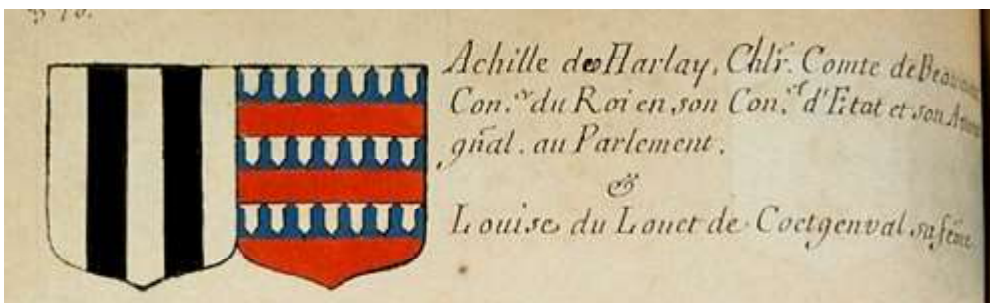 Achille de Harlay, Chlr. Comte de
Con.er du Roi en son Con.el d'Etat et son
gñal. au Parlement.
&
Louise du Louet de Coetgenval sa fẽme